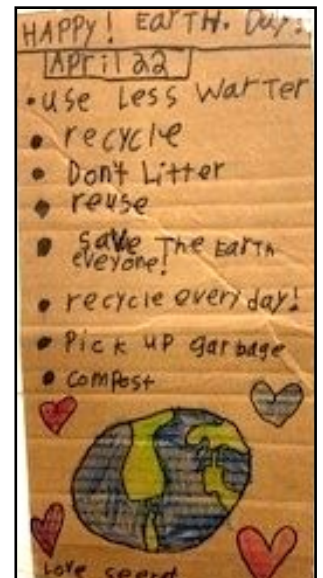 HAPPY! EarTH. Day!
April 22
• use Less Warter
• recycle
• Don't Litter
• reuse
• Save The EarTh
eveyone!
• recycle every day!
• Pick up garbage
• compost
Love